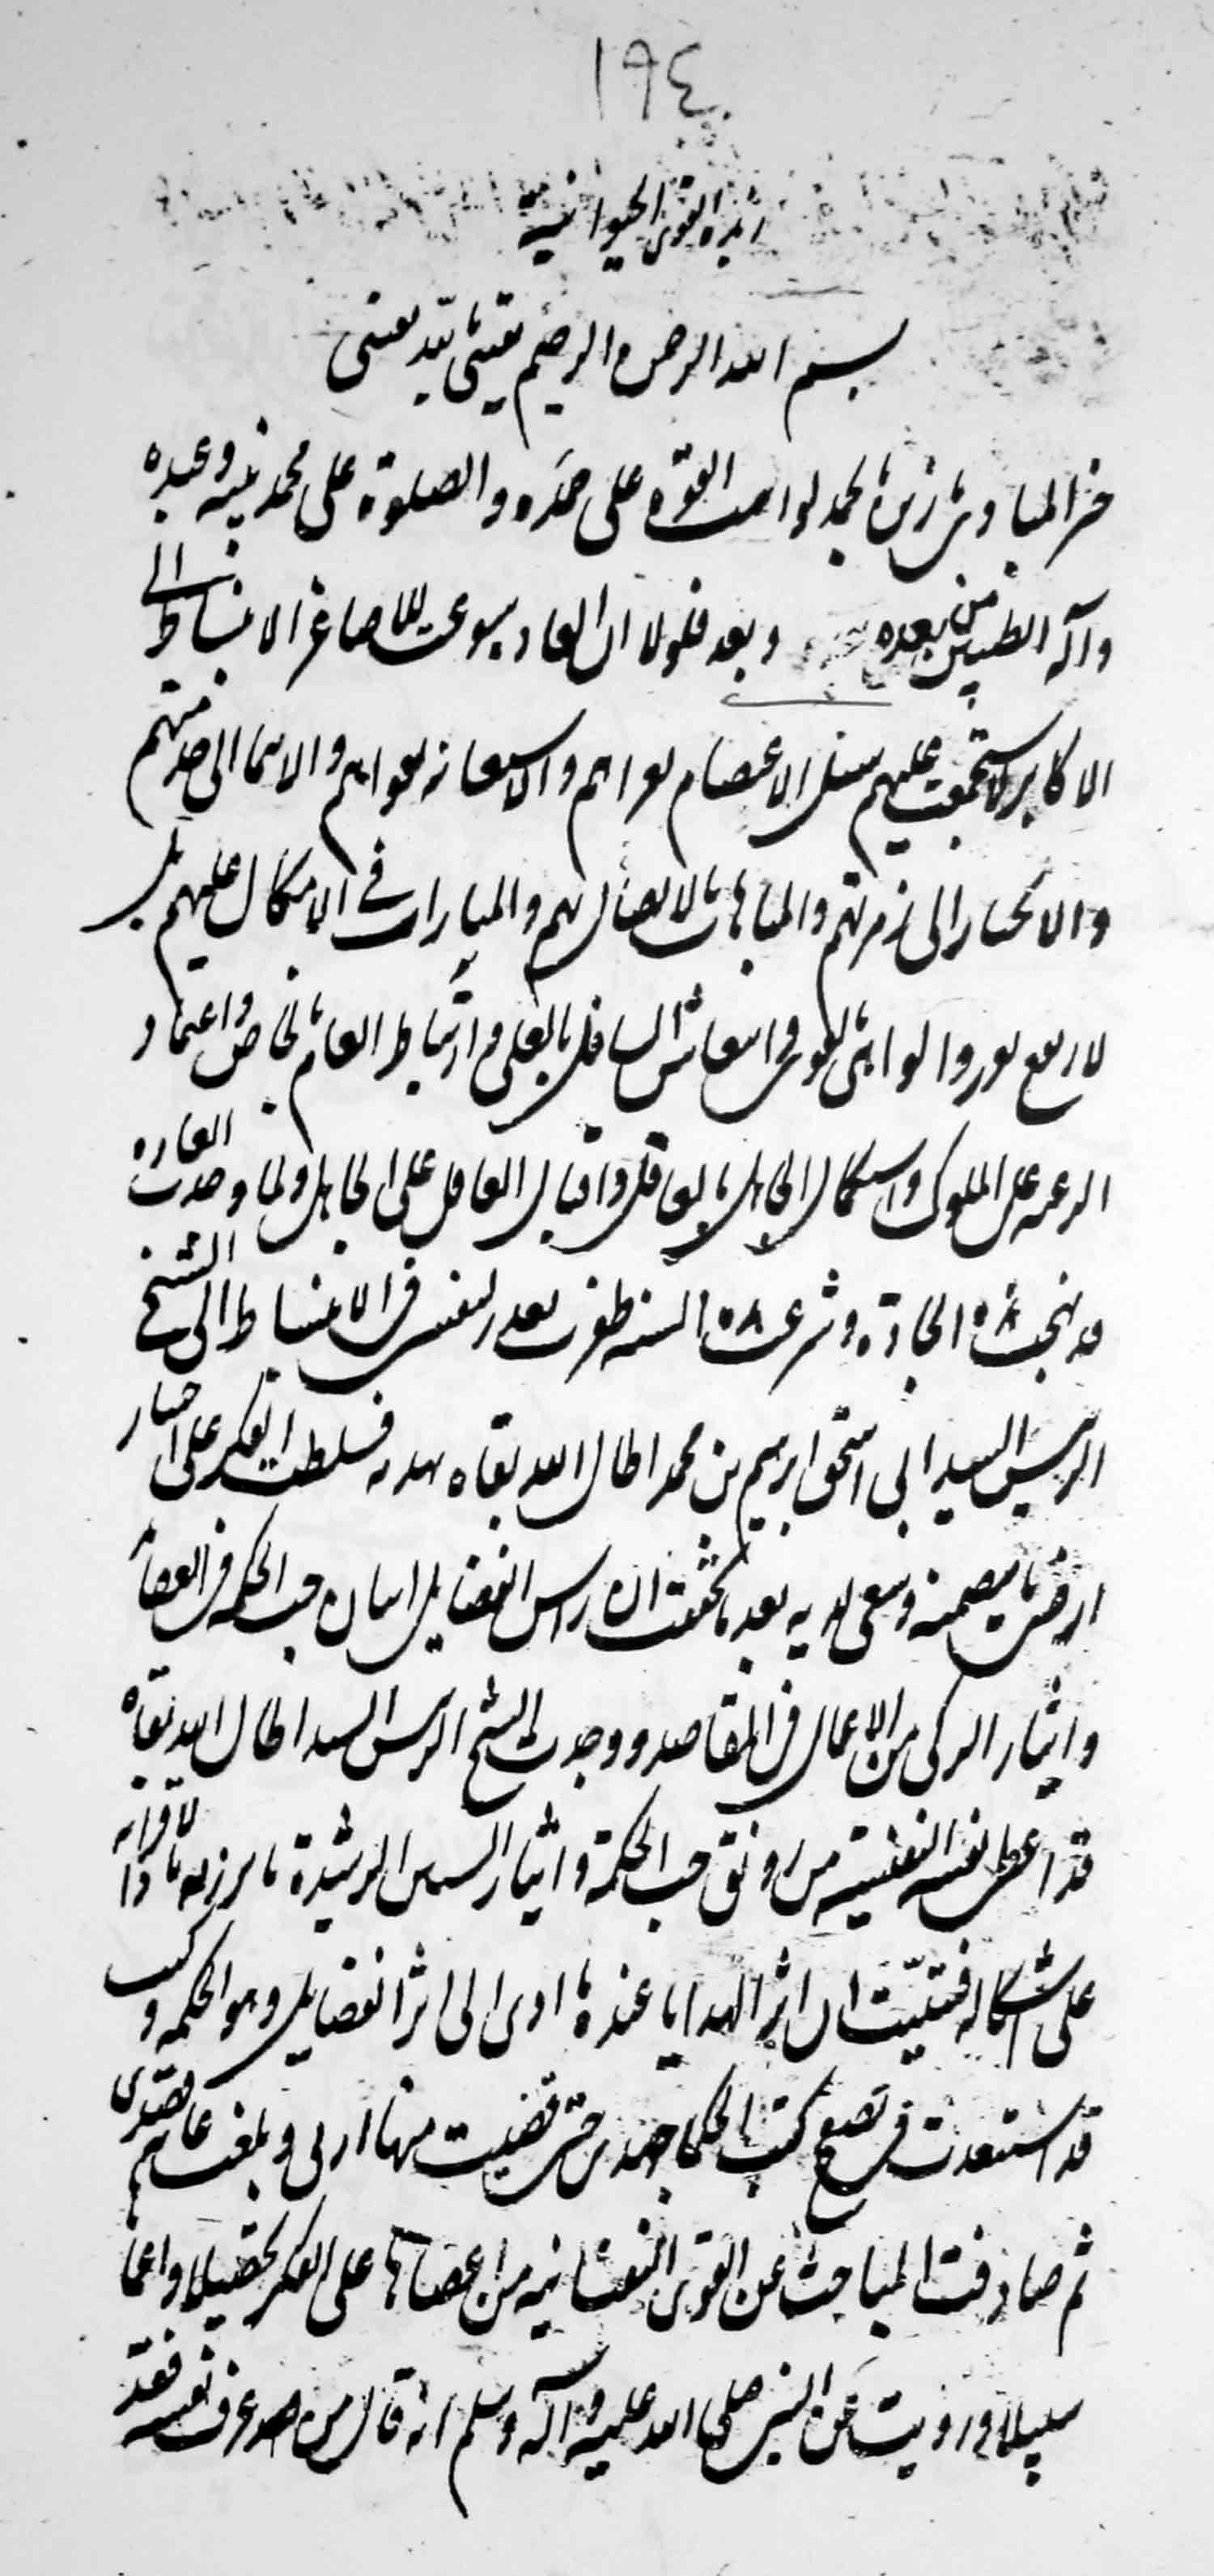 ١٩٤
القوى الحيوانية
بسم الله الرحمن الرحيم ثقتى بالله
خير المبادى الحمد لواهب القوة على حمده والصلوة على محمد نبيه وعبده
وآله الطيبين من بعده وبعد فلولا ان العادة سوغت للاصاغر الانبساط الى
الاكابر لاستعجمت عليهم سبل الاعتصام بعراهم والاستعانة بقواهم والانتماء الى خدمتهم
والانحياز الى زمرتهم والمباهات بالاتصال بهم والمبارات فى الاتكال عليهم بل
السافل بالعلى وارتباط العام بالخاص واعتماد
الرعية على الملوك واستكمال الجاهل بالعاقل واقبال العاقل على الجاهل ولما وجدت العادة
قد نهجت هذه الجادة وشرعت هذه السنة ظفرت بعذر لنفسى فى الانبساط الى الشيخ
الرئيس السيد ابى اسحق ابرهيم بن محمد اطال الله بقاه بهدية فسلطت الفكر على اختيار
ارضى ما يتضمنه وسعى لديه بعد ما تحققت ان راس الفضايل اثنان حب الحكمة فى العقائد
وايثار الزكى من الاعمال فى المقاصد ووجدت الشيخ الرئيس السيد اطال الله بقاه
قد اعطى نفسه النفيسة من رونق حب الحكمة وايثار السير الرشيدة ما برز به بادا لاقرانه
على اشكاله فتبينت ان اثر الهدايا عنده ما ادى الى اثر الفضايل وهو الحكمة وكنت
قد استنفدت فى تصفح كتب الحكماء جهدى حتى قضيت منها اربى وبلغت
ثم صادفت المباحث عن القوى النفسانية من اعصاها على الفكر تحصيلا واعما
سبيلا ورويت عن النبى صلى الله عليه وآله وسلم انه قال من عرف نفسه فقد